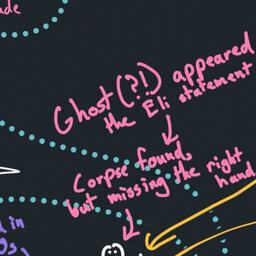 ade
Ghost (?!) appeared
the Eli statement
Corpse found,
but missing the right
hand
d in
0s